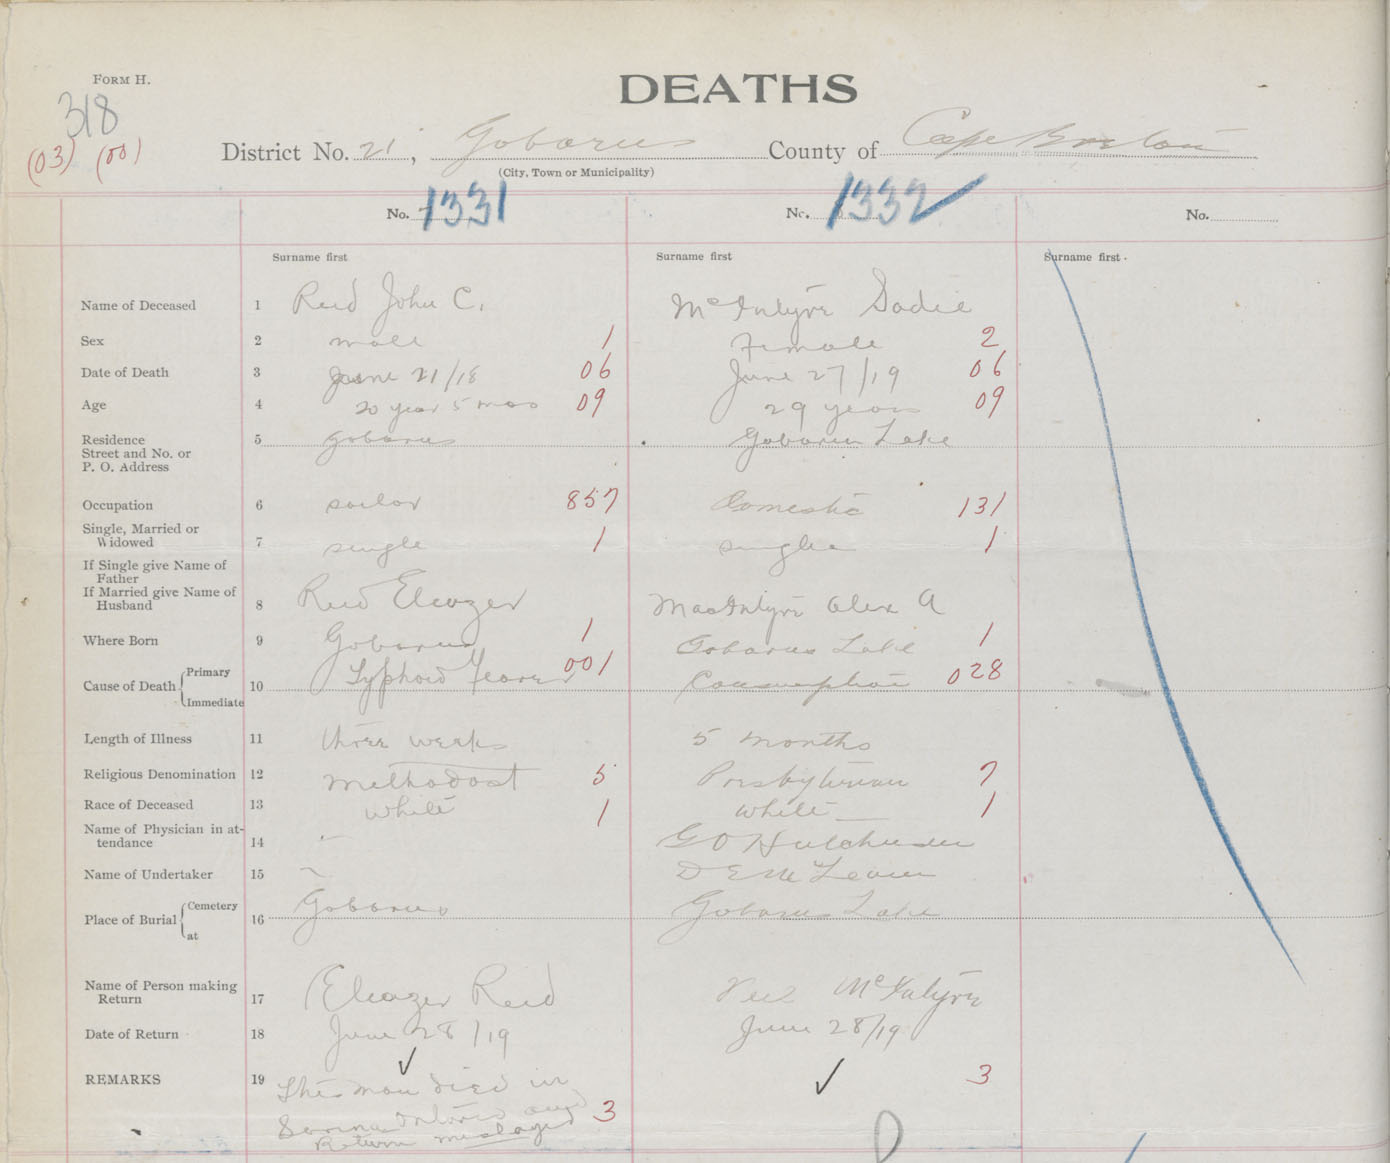 FORM H.
DEATHS
318
(03) (00)
District No. 21, Gobarus County of Cape Breton
(City, Town or Municipality)
No. 1331 No. 1332 No.
Surname first Surname first Surname first
Name of Deceased 1 Reid John C. McIntyre Sadie
Sex 2 male 1 Female 2
Date of Death 3 June 21/18 06 June 27/19 06
Age 4 20 year 5 mos 09 29 years 09
Residence 5 Gobarus Gobarus Lake
Street and No. or
P. O. Address
Occupation 6 sailor 857 Domestic 131
Single, Married or
Widowed 7 single 1 single 1
If Single give Name of
Father
If Married give Name of
Husband 8 Reid Eleazer MacIntyre Alex A
Where Born 9 Gobarus 1 Gobarus Lake 1
Cause of Death { Primary Typhoid Fever 001 Consumption 028
10
Immediate
Length of Illness 11 three weeks 5 months
Religious Denomination 12 Methodost 5 Presbyterian 7
Race of Deceased 13 white 1 white 1
Name of Physician in at-
tendance 14 - G O Hutchinson
Name of Undertaker 15 ~ D E McLean
Place of Burial { Cemetery 16 Gobarus Gobarus Lake
at
Name of Person making
Return 17 Eleazer Reid McIntyre
Date of Return 18 June 28/19 June 28/19
REMARKS 19 ✓ ✓ 3
This man died in
Sarnia Ontario and 3
Return mislayed